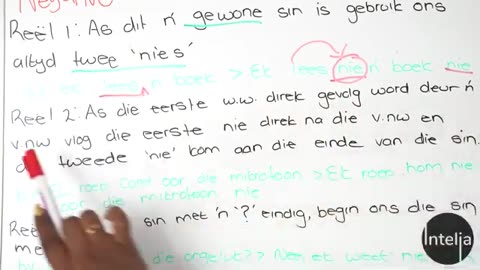 Negative
Reël 1: As dit 'n gewone sin is gebruik ons
altyd twee 'nies'
'n boek > Ek lees nie 'n boek nie
Reël 2: As die eerste w.w. direk gevolg word deur 'n
v.nw vlog die eerste nie direk na die v.nw en
tweede 'nie' kom aan die einde van die sin.
roep hom oor die mikrofoon > Ek roep hom nie
oor die mikrofoon nie
sin met 'n '?' eindig, begin ons die sin
me
die ongeluk? > Nee ek weet
Intelja